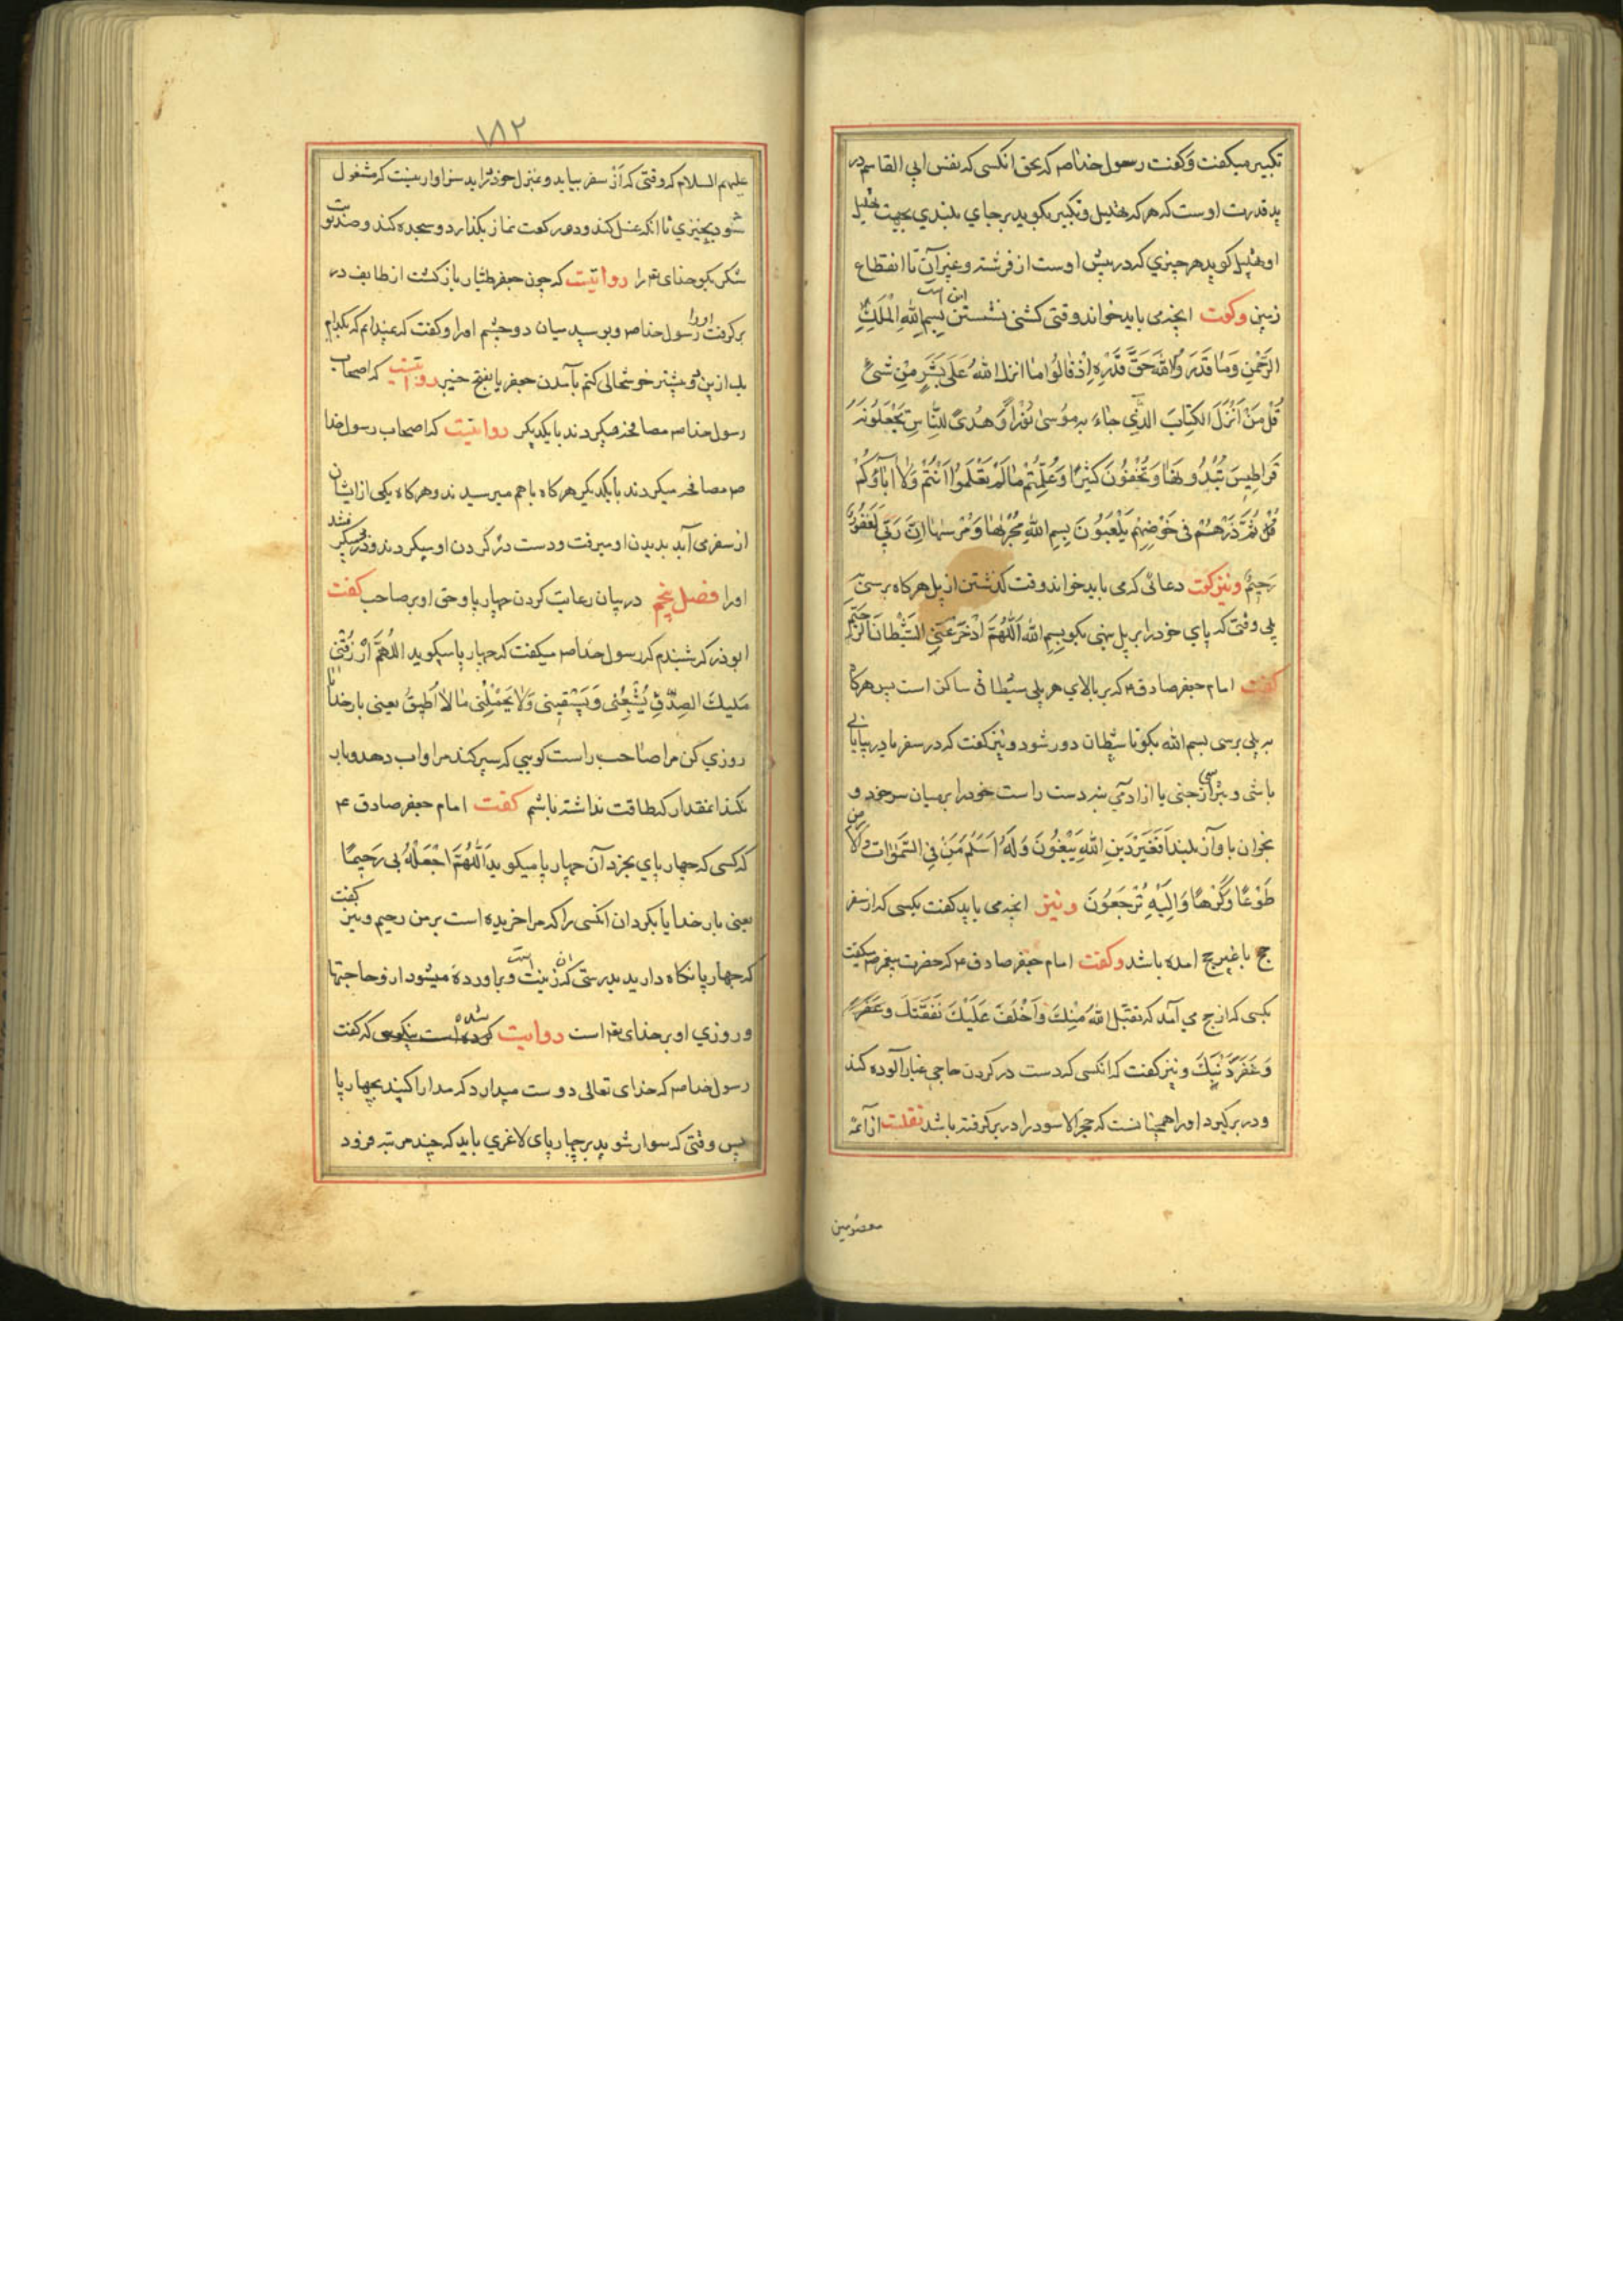 تکبیر میکفت و کفت رسول خدا ص که بحق انکسی که نفس ابی القاسم در
ید قدرت اوست که هر که تهلیل و تکبیر بکوید بر جای بلندی بجهت تهلیل
او تهلیل کوید هر چیزی که در پیش اوست از فرشته و غیر آن تا انقطاع
زمین وکفت انچه می باید خواند وقتی کشتی نشستن این است بِسمِ اللهِ الْمَلَكِ
الرَّحْمٰنِ وَمَا قَدَرُوا اللّٰهَ حَقَّ قَدْرِهِ اِذْ قَالُوا مَا انزل اللهُ عَلٰی بَشَرٍ مِنْ شیءٍ
قُلْ مَنْ اَنْزَلَ الکِتَابَ الَّذِی جَاءَ بِهِ مُوسیٰ نُوْراً وَهُدیً لِلنَّاسِ تَجْعَلُونَهُ
قَرَاطِیسَ تُبْدُونَهَا وَتُخْفُونَ کَثِیرًا وَعُلِّمْتُمْ مَا لَمْ تَعْلَمُوا اَنْتُمْ وَلَا اٰبَاؤُکُمْ
قُلِ اللهُ ثُمَّ ذَرْهُمْ فی خَوْضِهِمْ یَلْعَبُونَ بِسمِ اللهِ مَجْرٰیهَا وَمُرْسٰهَا اِنَّ رَبِّی لَغَفُورٌ
رَحِیمٌ ونیز کفت دعائی که می باید خواند وقت کذشتن از پل هر کاه برسی
پلی وقتی که پای خود را بر پل نهی بکو بِسمِ الله اَللّٰهُمَّ ادْحَرْ عَنِّی الشَّیْطَانَ الرَّجِیمَ
کفت امام جعفر صادق ع که بر بالای هر پلی شیطانی ساکن است پس هرکاه
به پلی برسی بسم الله بکو تا شیطان دور شود و نیز کفت که در سفر یا در بیابانی
باشی و بترسی از جنی یا از ادمی بنه دست راست خود را بر میان سر خود و
بخوان با واز بلند اَفَغَیْرَ دِینِ اللهِ یَبْغُونَ وَلَهُ اَسْلَمَ مَنْ فِی السَّمٰوَاتِ وَالْاَرْضِ
طَوْعًا وَکَرْهًا وَاِلَیْهِ تُرْجَعُونَ ونیز انچه می باید کفت بکسی که از سفر
حج یا غیر حج امده باشد وکفت امام جعفر صادق ع که حضرت پیغمبر ص میکفت
بکسی که از حج می آمد که تقبل اللهُ مِنْكَ وَاَخْلَفَ عَلَیْكَ نَفَقَتَكَ وَغَفَرَ
وَغَفَرَ ذَنْبَكَ و نیز کفت که انکسی که دست در کردن حاجی غبار آلوده کند
و در بر کیرد او را همچنانست که حجر الاسود را در بر کرفته باشد نقلست از آئمه
معصومین
۱۸۲
علیهم السلام که وقتی که از سفر بیاید و بمنزل خود در اید سزاوار نیست که مشغول
شود بچیزی تا انکه غسل کند و دو رکعت نماز بکذارد و سجده کند و صد نوبت
شکر بکو خدای تع را روایتست که چون جعفر طیار باز کشت از طایف در
بر کرفت او را رسول خدا ص و بوسید میان دو چشم او را و کفت که نمیدانم که بکدام
یك ازین دو بیشتر خوشحالی کنم بآمدن جعفر یا بفتح خیبر روایتست که اصحاب
رسول خدا ص مصافحه میکردند با یکدیکر روایتست که اصحاب رسول خدا
ص مصافحه میکردند با یکدیکر هر کاه با هم میرسیدند و هر کاه یکی از ایشان
از سفر می آید بدیدن او میرفت و دست در کردن او میکردند و در بر میکرفتند
اورا فصل پنجم در بیان رعایت کردن چهار پا و حق او بر صاحب کفت
ابوذر که شنیدم که رسول خدا ص میکفت که چهار پا میکوید اللّٰهُمَّ ارْزُقْنِی
مَلِیكَ الصِدْقِ یُشْبِعُنی وَیَسْقِینِی وَلَا یُحَمِّلُنِی مَا لَا اُطِیقُ یعنی بار خدایا
روزی کن مرا صاحب راست کویی که سیر کند مرا و اب دهد و بار
نکند انمقدار که طاقت نداشته باشم کفت امام جعفر صادق ع
که کسی که چهار پای بخرد آن چهار پا میکوید اَللّٰهُمَّ اجْعَلْهُ بی رَحِیمًا
یعنی بار خدایا بکردان انکسی را که مرا خریده است بر من رحیم و نیز کفت
که چهار پا نکاه دارید بدرستی که ان زینت است و براورده میشود از و حاجتها
و روزی او بر خدای تع است روایت شده است که کفت
رسول خدا ص که خدای تعالی دوست میدارد که مدارا کنید بچهار پا
پس وقتی که سوار شوید بر چهار پای لاغری باید که چند مرتبه فرود